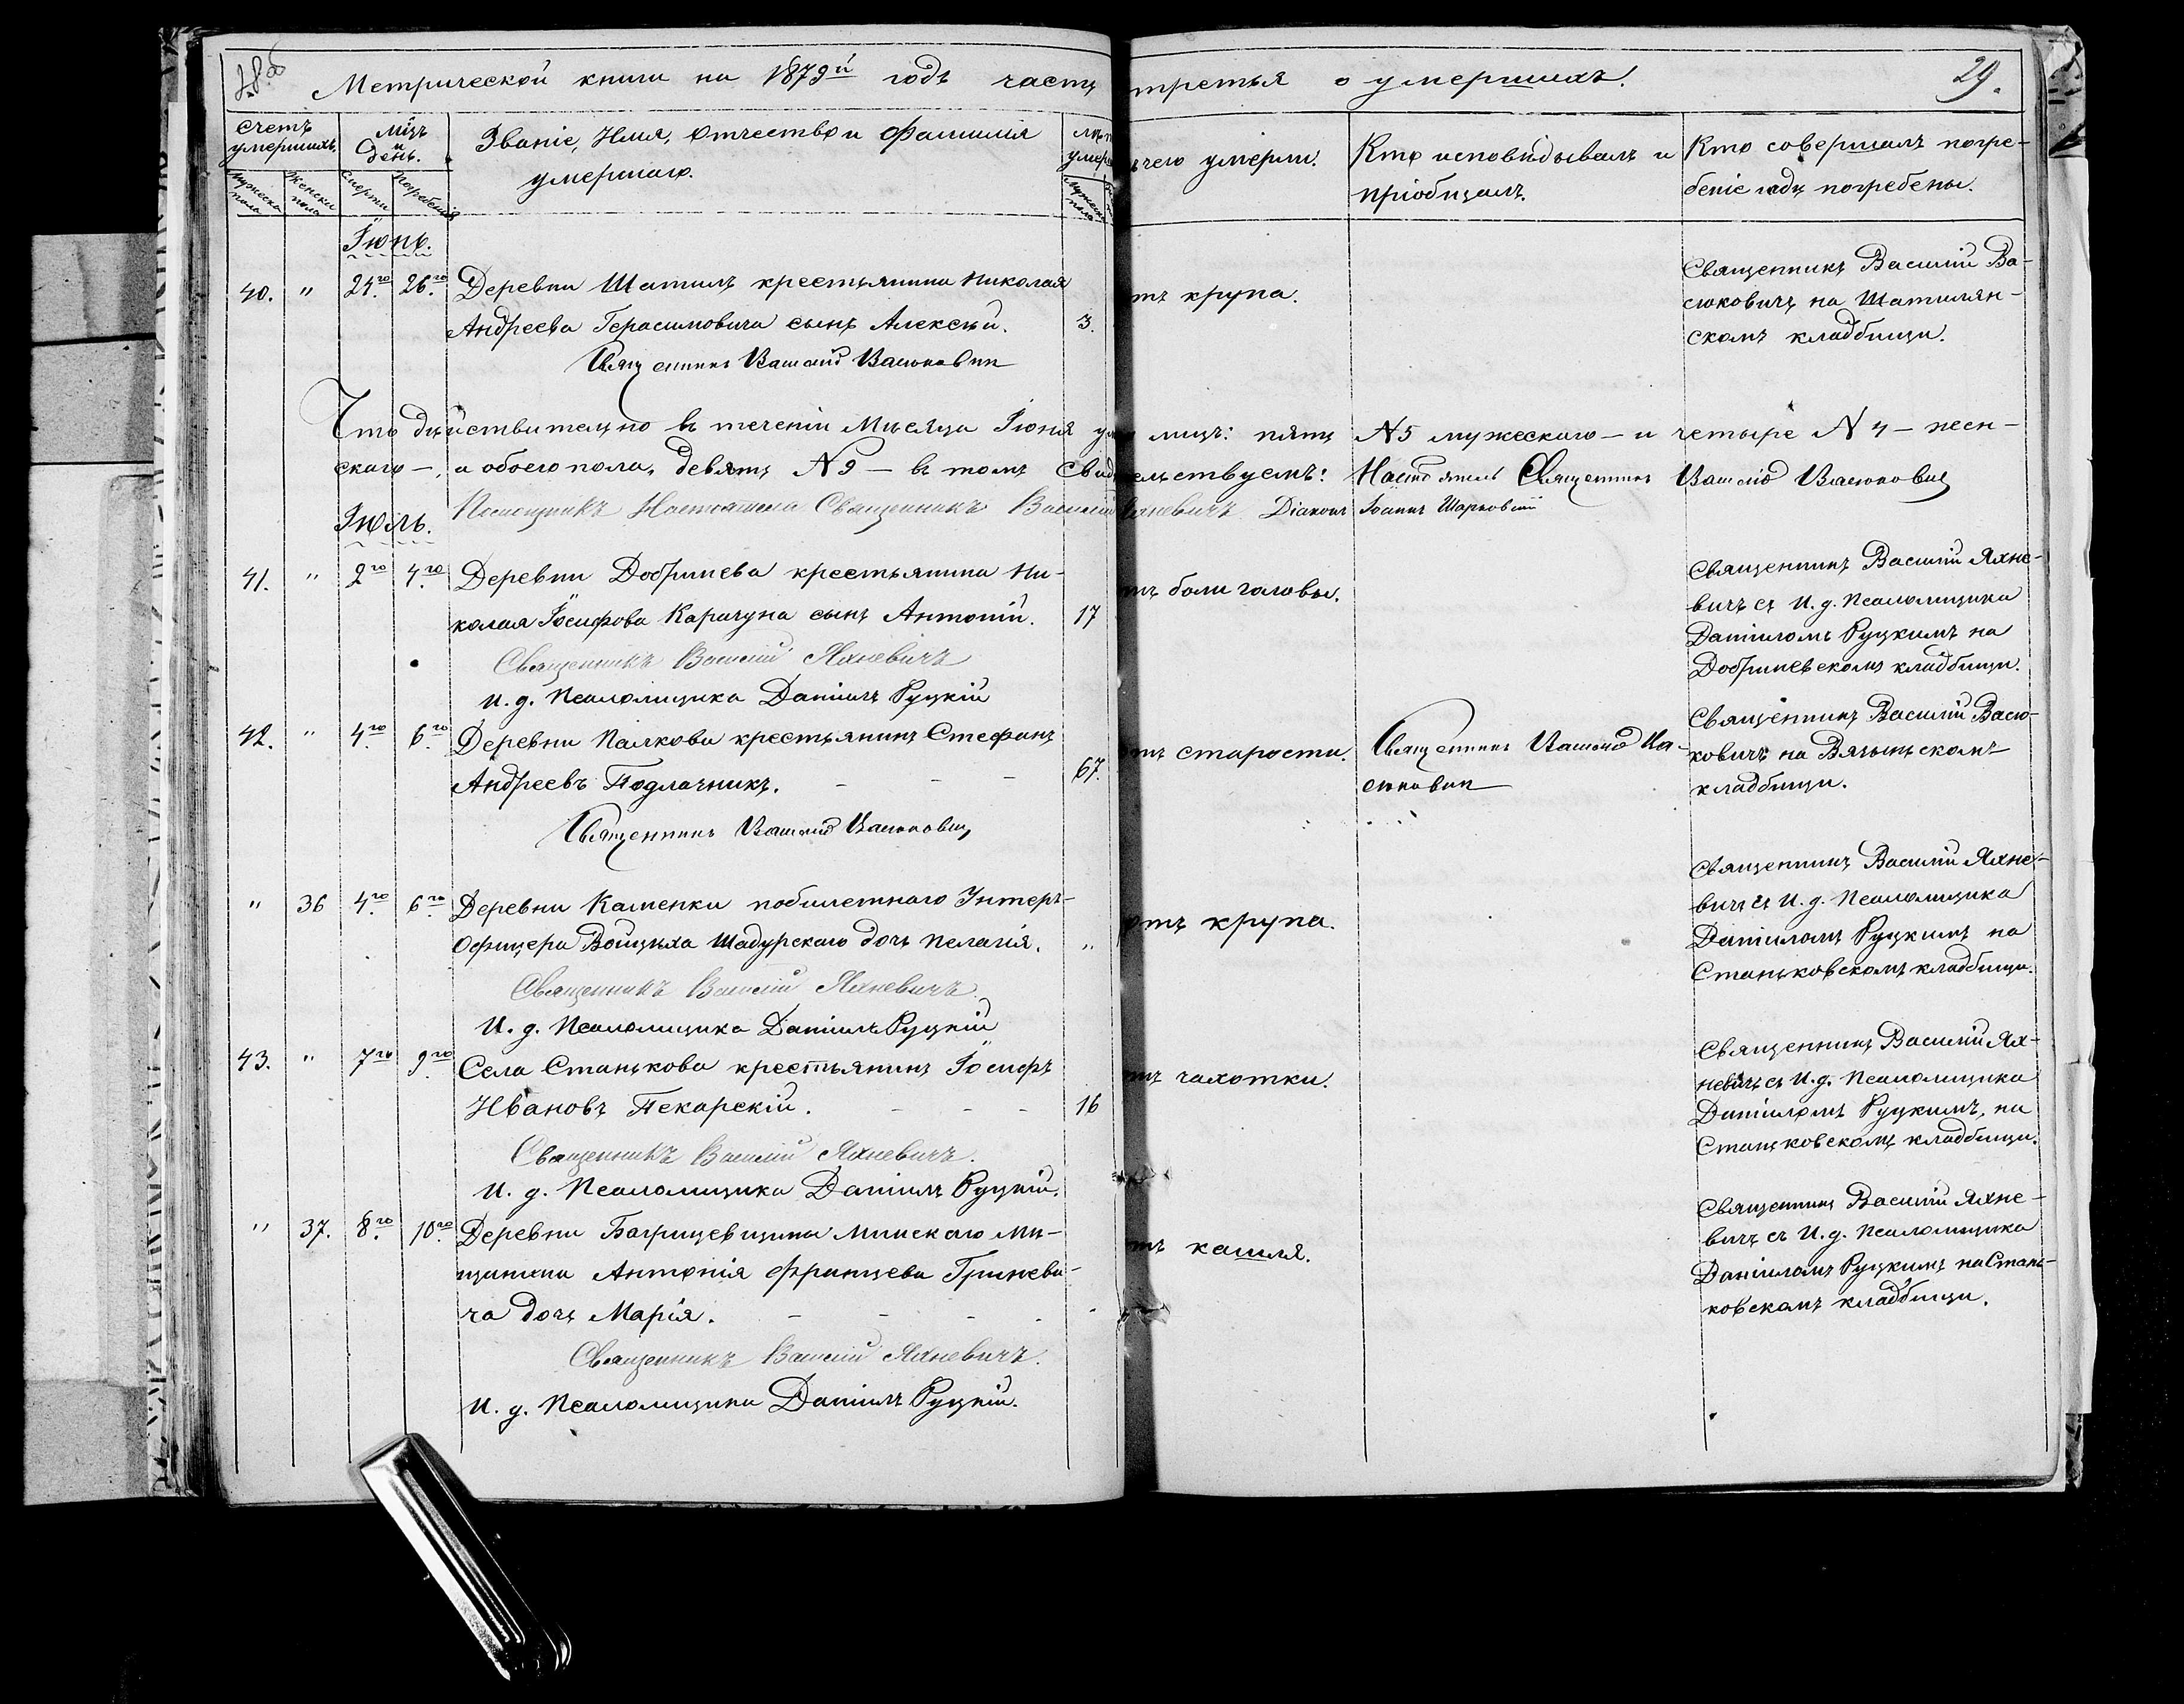 Метрической книги на 1879й годъ часть третья о умершихъ.
29.
Счетъ умершихъ.
Мцъ и День.
Званіе, Имя, Отчество и Фамилія
умершаго.
чего умерли.
Кто исповѣдывалъ и
пріобщалъ.
Кто совершалъ погре-
беніе и гдѣ погребены.
Мужеска пола
Женска пола
Смерти
Погребенія
Мужеска пола
Іюнь.
40. " 24го 26го Деревни Шатилъ крестьянина Николая
Андреева Герасимовича сынъ Алексѣй. 3.
Священникъ Василій Васюковичъ
тъ крупа.
Священникъ Василій Ва-
сюковичъ на Шатилян-
скомъ кладбищи.
Что дѣйствительно въ теченіи Мѣсяца Іюня лицъ: пять №5 мужескаго – и четыре №4 – жен-
скаго –, а обоего пола, девять №9 – въ томъ свидѣтельствуемъ: Настоятель Священникъ Василій Васюковичъ
Помощникъ Настоятеля Священникъ Василій Яхневичъ Діаконъ Іоаннъ
Іюль.
41. " 2го 4го Деревни Добринева крестьянина Ни-
колая Іосифова Карачуна сынъ Антоній. 17
Священникъ Василій Яхневичъ
И. д. Псаломщика Даніилъ Руцкій
тъ боли головы.
Священникъ Василій Яхне-
вичъ съ И. д. Псаломщика
Даніиломъ Руцкимъ на
Добриневскомъ кладбищи.
42. " 4го 6го Деревни Палкова крестьянинъ Стефанъ
Андреевъ Подлачникъ. – – – 67.
Священникъ Василій Васюковичъ
отъ старости.
Священникъ Василій Ва-
сюковичъ
Священникъ Василій Васю-
ковичъ на Вязынскомъ
кладбищи.
" 36 4го 6го Деревни Каменки побилетнаго Унтеръ-
Офицера Войцѣха Шадурскаго дочь Пелагія. "
Священникъ Василій Яхневичъ
И. д. Псаломщика Даніилъ Руцкій
отъ крупа.
Священникъ Василій Яхне-
вичъ съ И. д. Псаломщика
Даніиломъ Руцкимъ на
Станьковскомъ кладбищи.
43. " 7го 9го Села Станькова крестьянинъ Іосифъ
Ивановъ Пекарскій. – – – 16
Священникъ Василій Яхневичъ.
И. д. Псаломщика Даніилъ Руцкій.
тъ чахотки.
Священникъ Василій Ях-
невичъ съ И. д. Псаломщика
Даніиломъ Руцкимъ, на
Станьковскомъ кладбищи.
" 37. 8го 10го Деревни Багрицевщины Минскаго Мѣ-
щанина Антонія Францева Гриневи-
ча дочь Марія. – – –
Священникъ Василій Яхневичъ.
И. д. Псаломщика Даніилъ Руцкій.
тъ кашля.
Священникъ Василій Яхне-
вичъ съ И. д. Псаломщика
Даніиломъ Руцкимъ на Стань-
ковскомъ кладбищи.